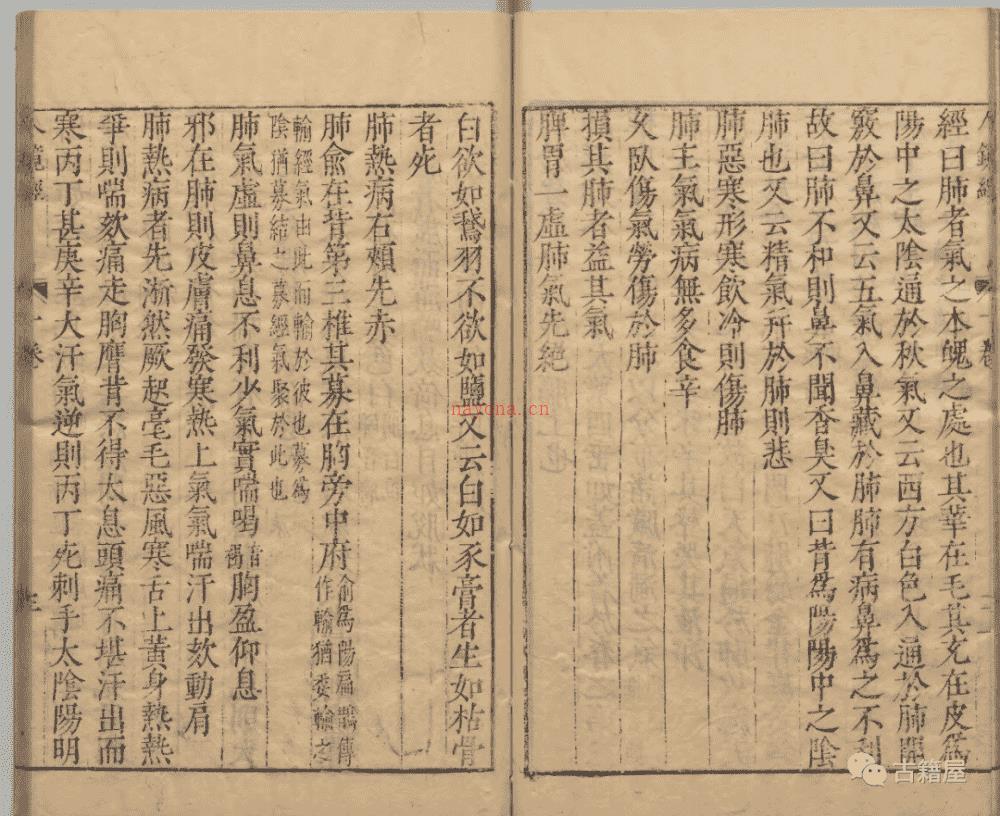 經曰肺者氣之本魄之處也其華在毛其充在皮爲
陽中之太陰通於秋氣又云西方白色入通於肺開
竅於鼻又云五氣入鼻藏於肺肺有病鼻爲之不利
故曰肺不和則鼻不聞香臭又曰背爲陽陽中之陰
肺也又云精氣并於肺則悲
肺惡寒形寒飲冷則傷肺
肺主氣氣病無多食辛
久臥傷氣勞傷於肺
損其肺者益其氣
脾胃一虛肺氣先絶
白欲如鵝羽不欲如鹽又云白如豕膏者生如枯骨
者死
肺熱病右頰先赤
肺俞在背第三椎其募在胸旁中府俞爲陽扁鵲傳作輸猶委輸之
輸經氣由此而輸於彼也募爲陰猶募結之募經氣聚於此也
肺氣虛則鼻息不利少氣實喘喝音褐胸盈仰息
邪在肺則皮膚痛發寒熱上氣氣喘汗出欬動肩
肺熱病者先淅然厥起毫毛惡風寒舌上黄身熱熱
爭則喘欬痛走胸膺背不得太息頭痛不堪汗出而
寒丙丁甚庚辛大汗氣逆則丙丁死刺手太陰陽明
人鏡經
卷
nayona.cn
古籍屋